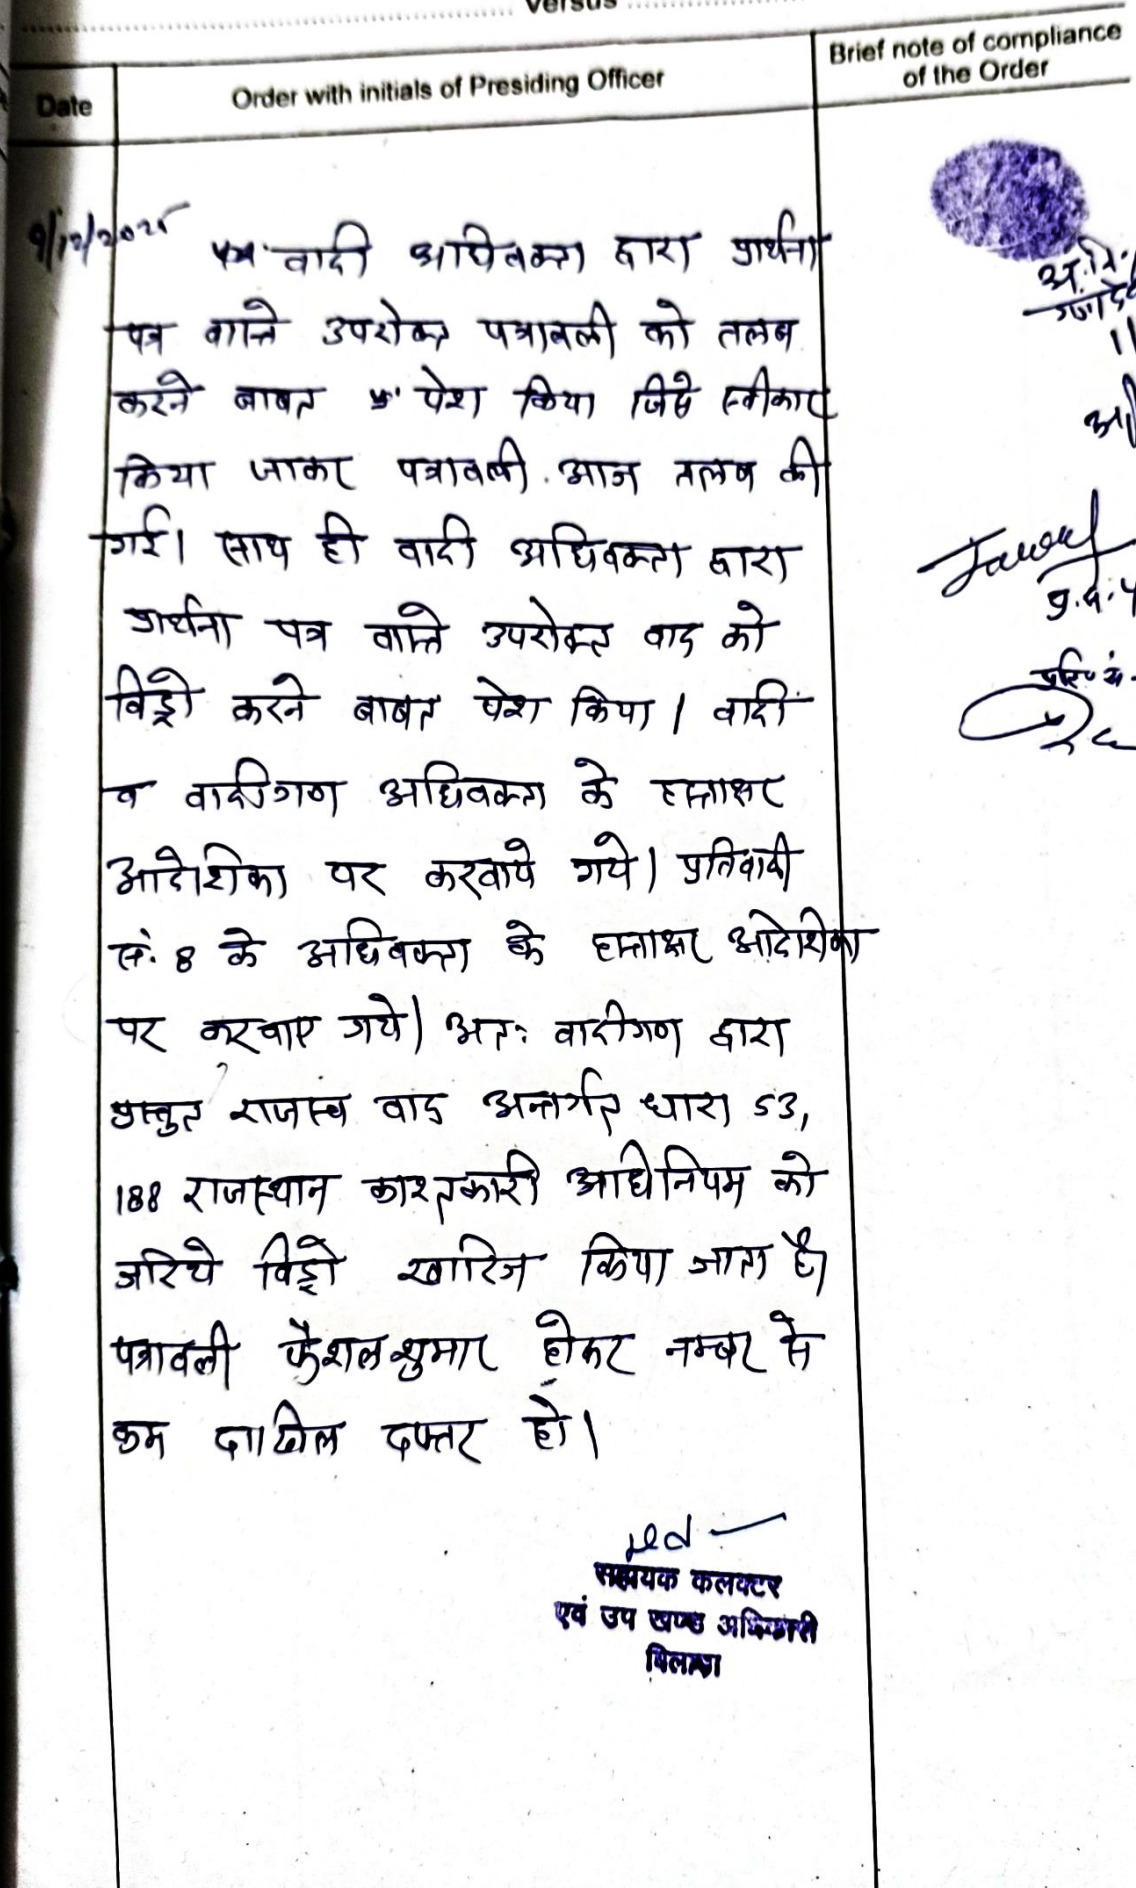 Versus
Date
Order with initials of Presiding Officer
Brief note of compliance
of the Order
9/12/2025
वादी अधिवक्ता द्वारा प्रार्थना
पत्र वास्ते उपरोक्त पत्रावली को तलब
करने बाबत पेश किया जिसे स्वीकार
किया जाकर पत्रावली आज तलब की
गई। साथ ही वादी अधिवक्ता द्वारा
प्रार्थना पत्र वास्ते उपरोक्त वाद को
विड्रो करने बाबत पेश किया। वादी
व वादीगण अधिवक्ता के हस्ताक्षर
आदेशिका पर करवाये गये। प्रतिवादी
सं. 8 के अधिवक्ता के हस्ताक्षर आदेशिका
पर करवाए गये। अतः वादीगण द्वारा
प्रस्तुत राजस्व वाद अन्तर्गत धारा 53,
188 राजस्थान काश्तकारी अधिनियम को
जरिये विड्रो खारिज किया जाता है।
पत्रावली फैशल शुमार होकर नम्बर से
कम दाखिल दफ्तर हो।
सहायक कलक्टर
एवं उप खण्ड अधिकारी